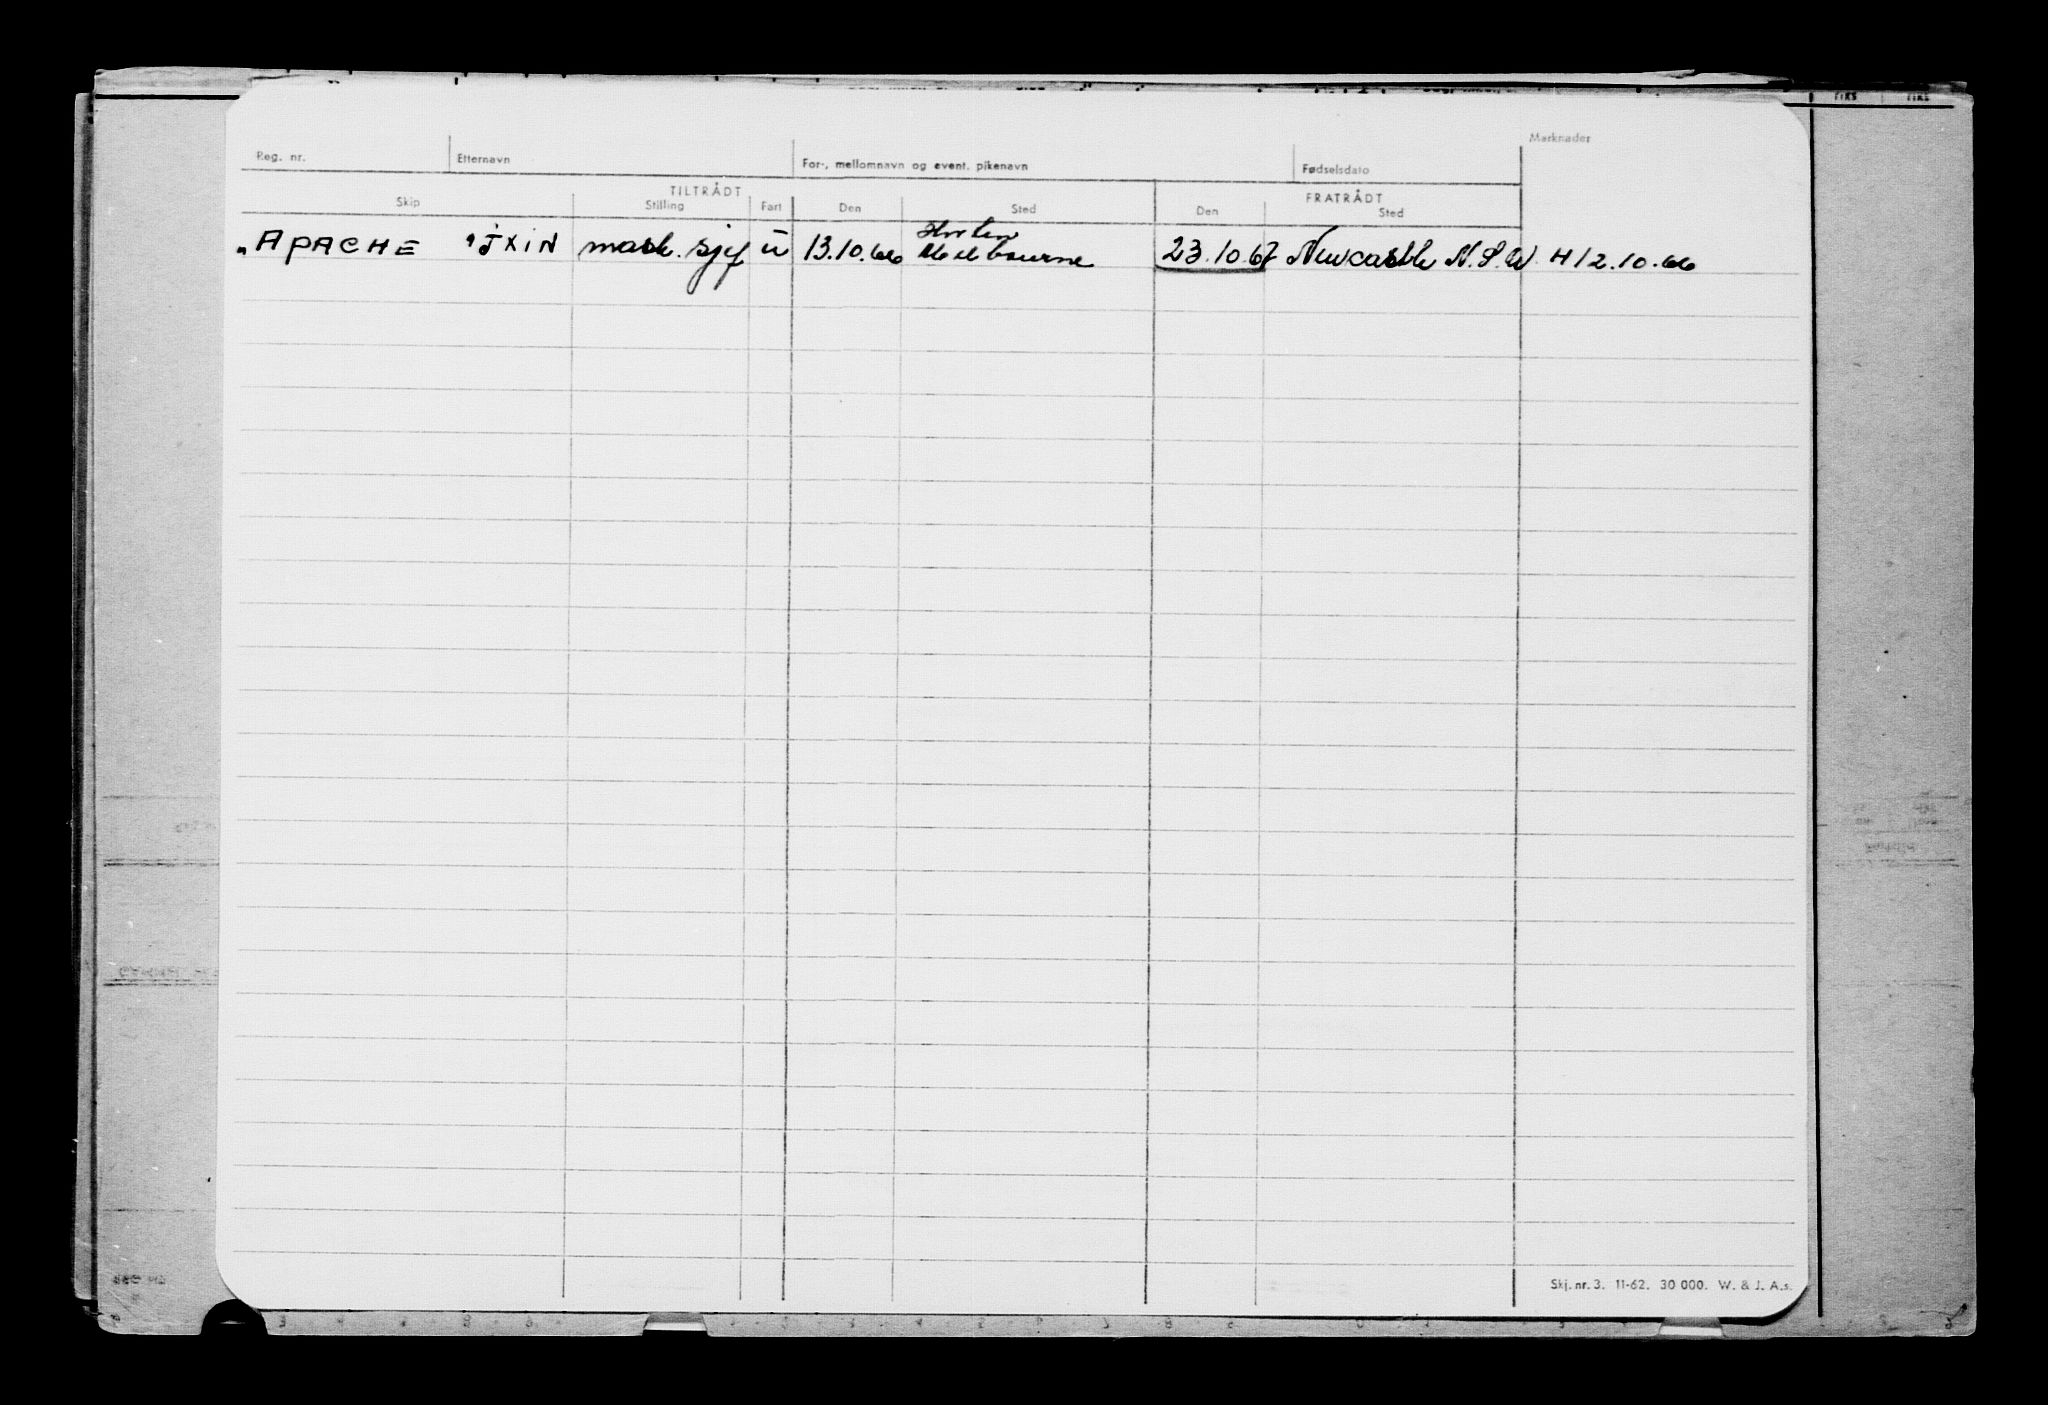 Reg. nr. Etternavn For-, mellomnavn og event. pikenavn Fødselsdato Merknader
TILTRÅDT FRATRÅDT
Skip Stilling Fart Den Sted Den Sted
Horten
"APACHE "JXIN mask. sjef U 13.10.66 Melbourne 23.10.67 Newcastle N.S.W H12.10.66
Skj. nr. 3. 11-62. 30 000. W. & J. A.s.